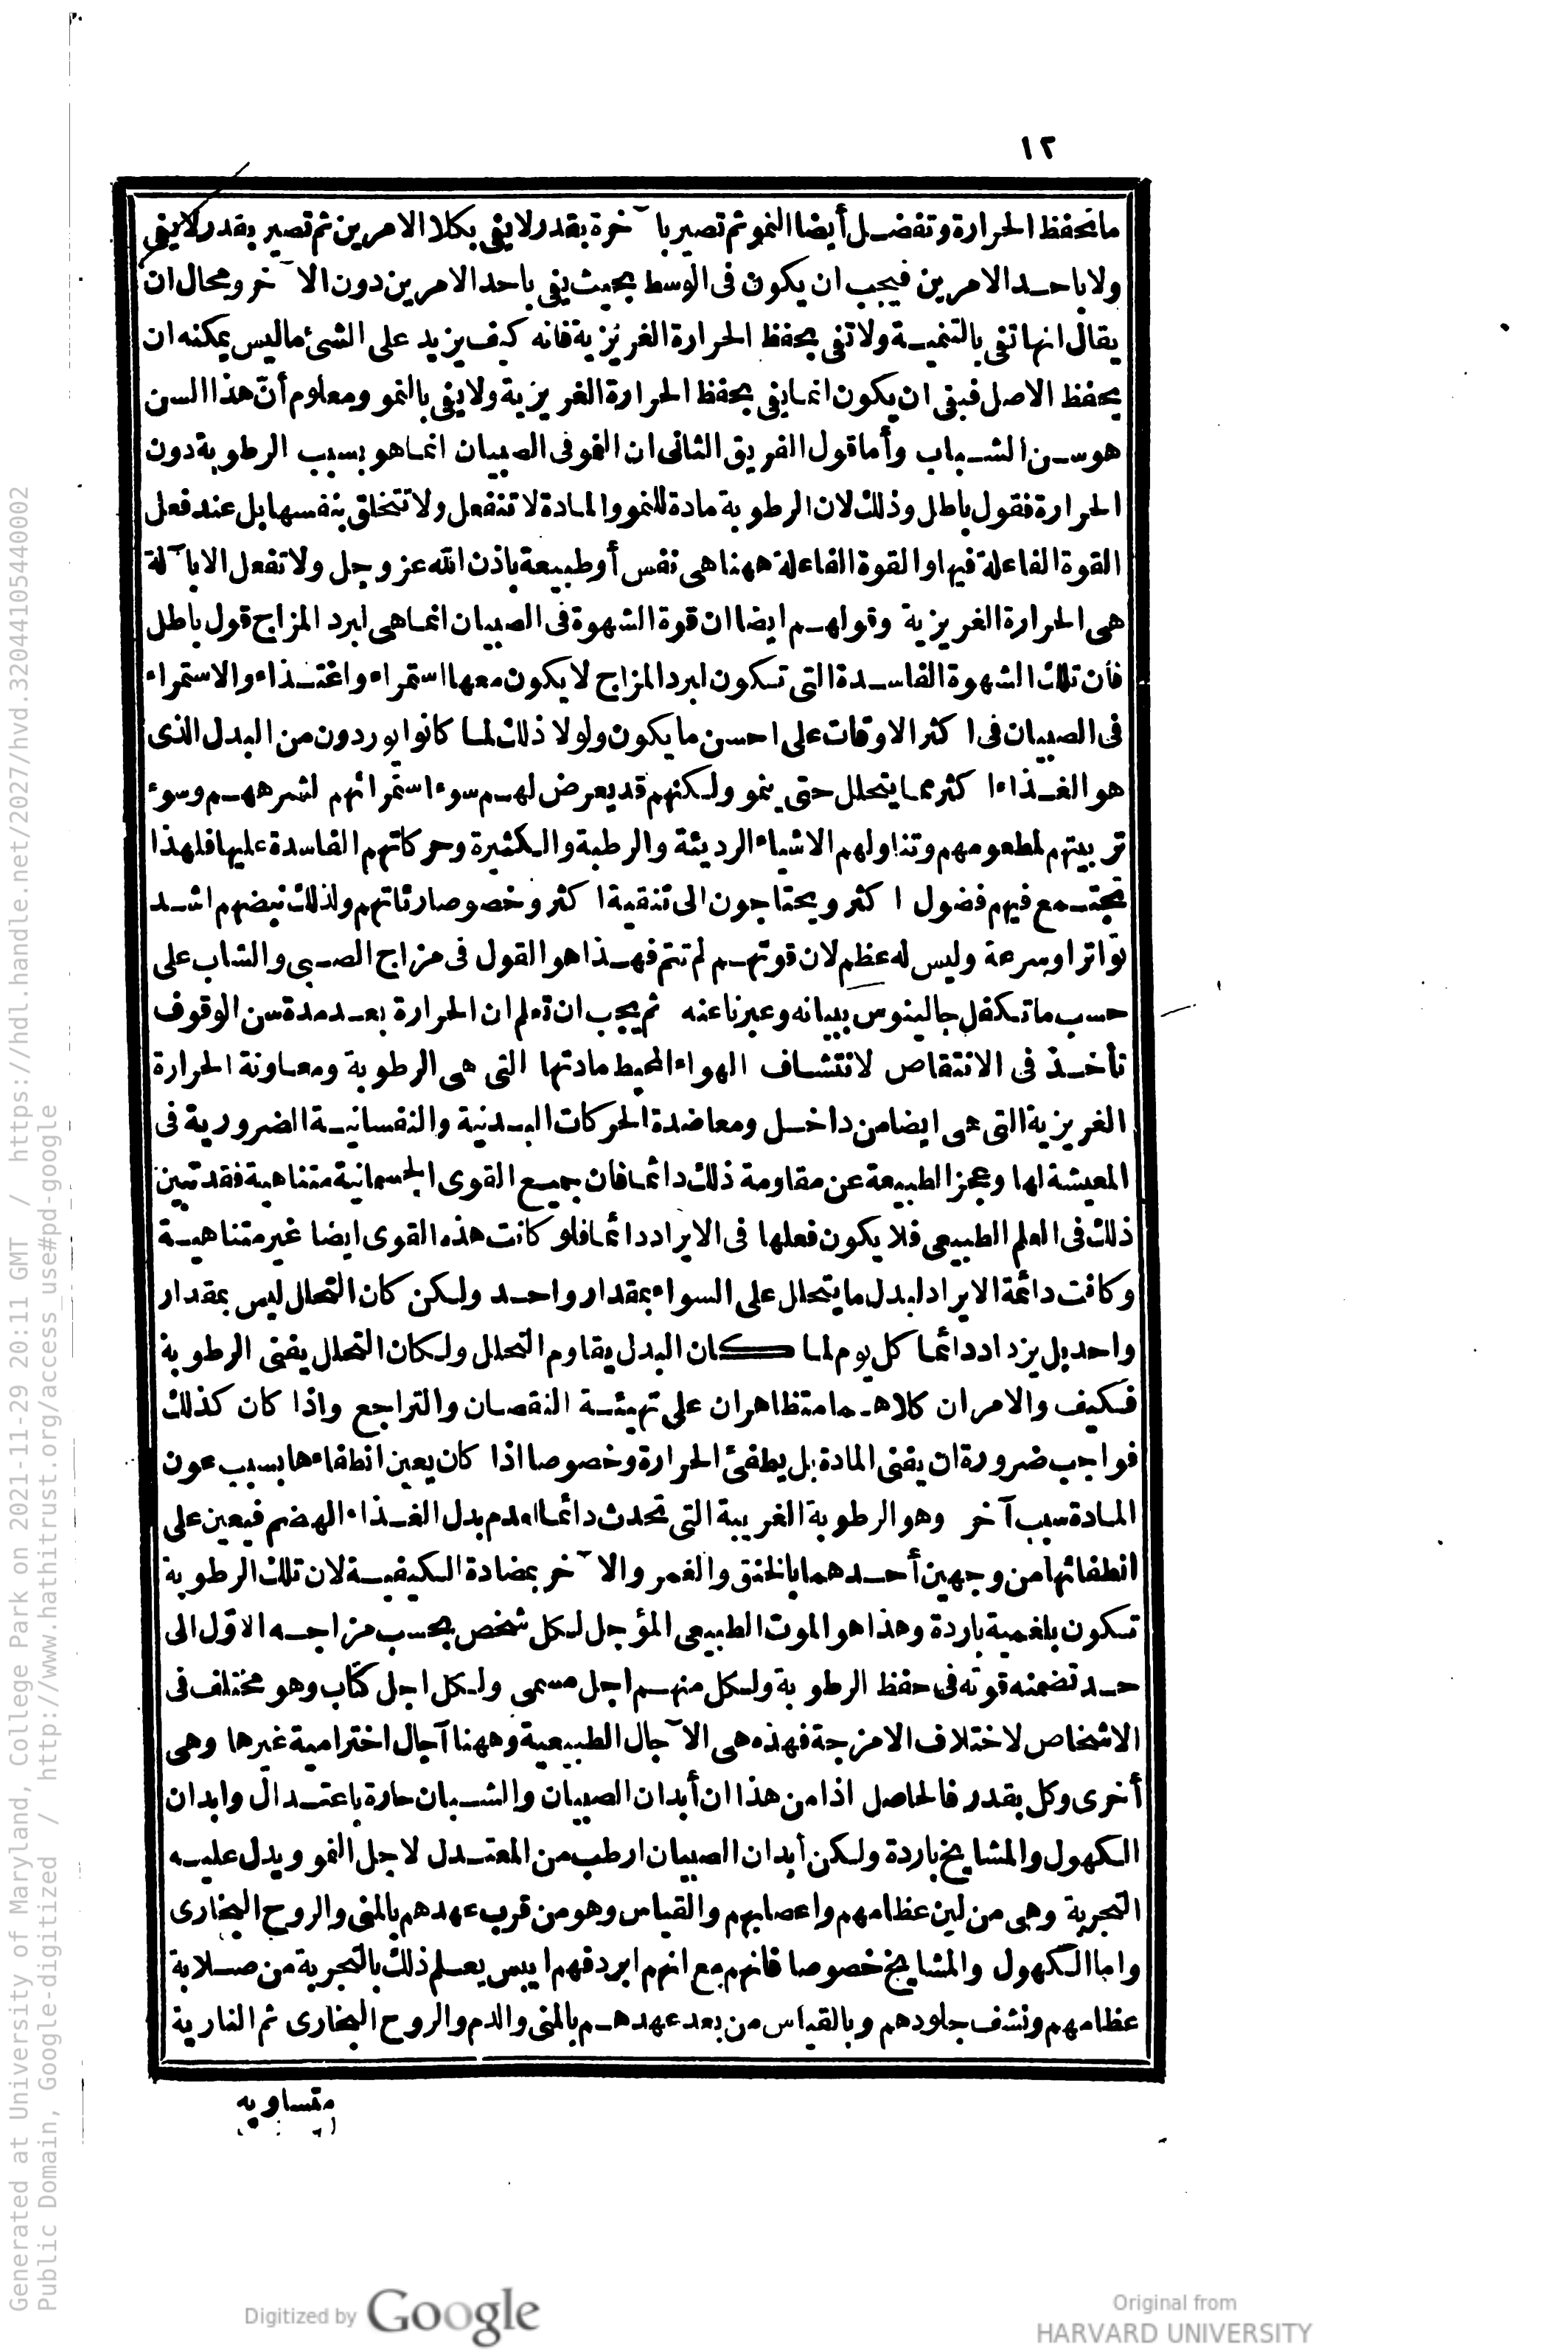 ١٢
ما تحفظ الحرارة وتفضل أيضا النمو ثم تصير بالآخرة بقدر لا يفى بكلا الامرين ثم تصير بقدر لا يفى
ولا باحد الامرين فيجب ان يكون فى الوسط بحيث يفى باحد الامرين دون الآخر ومحال ان
يقال انها تفى بالتنمية ولا تفى بحفظ الحرارة الغريزية فانه كيف يزيد على الشئ ما ليس يمكنه ان
يحفظ الاصل فبقى ان يكون انما يفى بحفظ الحرارة الغريزية ولا يفى بالنمو ومعلوم أنّ هذا السن
هو سن الشباب وأما قول الفريق الثانى ان النمو فى الصبيان انما هو بسبب الرطوبة دون
الحرارة فقول باطل وذلك لان الرطوبة مادة للنمو والمادة لا تنفعل ولا تتخلق بنفسها بل عند فعل
القوة الفاعلة فيها والقوة الفاعلة ههنا هى نفس أو طبيعة باذن الله عز وجل ولا تفعل الا بآلة
هى الحرارة الغريزية وقولهم ايضا ان قوة الشهوة فى الصبيان انما هى لبرد المزاج قول باطل
فان تلك الشهوة الفاسدة التى تكون لبرد المزاج لا يكون معها استمراء واغتذاء والاستمراء
فى الصبيان فى اكثر الاوقات على احسن ما يكون ولولا ذلك لما كانوا يوردون من البدل الذى
هو الغذاء اكثر مما يتحلل حتى ينمو ولكنهم قد يعرض لهم سوء استمرائهم لشرههم وسوء
تربيتهم لمطعومهم وتناولهم الاشياء الرديئة والرطبة والكثيرة وحركاتهم الفاسدة عليها فلهذا
تجتمع فيهم فضول اكثر ويحتاجون الى تنقية اكثر وخصوصا رئاتهم ولذلك نبضهم اشد
تواترا وسرعة وليس له عظم لان قوتهم لم تتم فهذا هو القول فى مزاج الصبى والشاب على
حسب ما تكفل جالينوس ببيانه وعبرنا عنه ثم يجب ان تعلم ان الحرارة بعد مدة سن الوقوف
تأخذ فى الانتقاص لانتشاف الهواء المحيط مادتها التى هى الرطوبة ومعاونة الحرارة
الغريزية التى هى ايضا من داخل ومعاضدة الحركات البدنية والنفسانية الضرورية فى
المعيشة لها وعجز الطبيعة عن مقاومة ذلك دائما فان جميع القوى الجسمانية متناهية فقد تبين
ذلك فى العلم الطبيعى فلا يكون فعلها فى الايراد دائما فلو كانت هذه القوى ايضا غير متناهية
وكانت دائمة الايراد لبدل ما يتحلل على السواء بمقدار واحد ولكن كان التحلل ليس بمقدار
واحد بل يزداد دائما كل يوم لما كان البدل يقاوم التحلل ولكان التحلل يفنى الرطوبة
فكيف والامران كلاهما متظاهران على تهيئة النقصان والتراجع واذا كان كذلك
فواجب ضرورة ان يفنى المادة بل يطفئ الحرارة وخصوصا اذا كان يعين انطفاءها بسبب عون
المادة سبب آخر وهو الرطوبة الغريبة التى تحدث دائما لعدم بدل الغذاء الهضم فيعين على
انطفائها من وجهين أحدهما بالخنق والغمر والآخر بمضادة الكيفية لان تلك الرطوبة
تكون بلغمية باردة وهذا هو الموت الطبيعى المؤجل لكل شخص بحسب مزاجه الاوّل الى
حد تضمنه قوته فى حفظ الرطوبة ولكل منهم اجل مسمى ولكل اجل كتاب وهو مختلف فى
الاشخاص لاختلاف الامزجة فهذه هى الآجال الطبيعية وههنا آجال اخترامية غيرها وهى
أخرى وكل بقدر فالحاصل اذا من هذا ان أبدان الصبيان والشبان حارة باعتدال وابدان
الكهول والمشايخ باردة ولكن أبدان الصبيان ارطب من المعتدل لاجل النمو ويدل عليه
التجربة وهى من لين عظامهم واعصابهم والقياس وهو من قرب عهدهم بالمنى والروح البخارى
واما الكهول والمشايخ خصوصا فانهم مع انهم ابرد فهم ايبس يعلم ذلك بالتجربة من صلابة
عظامهم ونشف جلودهم وبالقياس من بعد عهدهم بالمنى والدم والروح البخارى ثم النارية
متساويه
Generated at University of Maryland, College Park on 2021-11-29 20:11 GMT / https://hdl.handle.net/2027/hvd.32044105440002
Public Domain, Google-digitized / http://www.hathitrust.org/access_use#pd-google
Digitized by Google
Original from
HARVARD UNIVERSITY